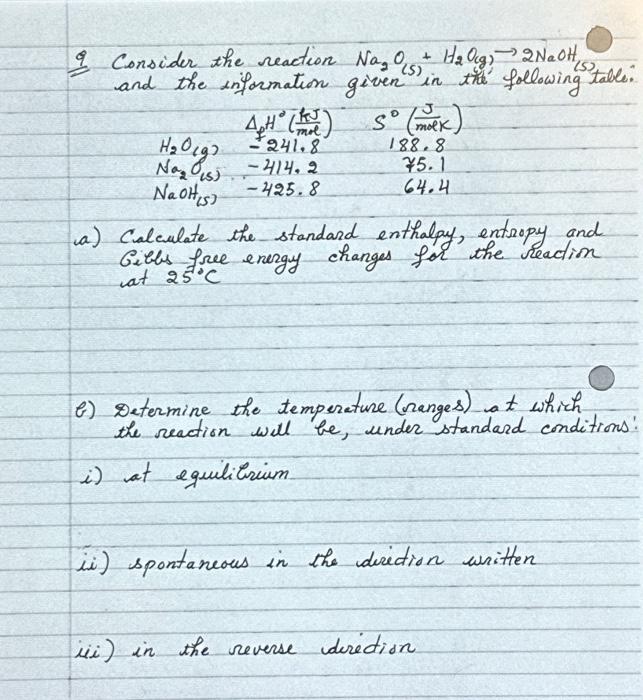 9 Consider the reaction Na₂O(s) + H₂O(g) → 2NaOH(s)
and the information given in the following table:
ΔfH° (kJ/mol) S° (J/molK)
H₂O(g) -241.8 188.8
Na₂O(s) -414.2 75.1
NaOH(s) -425.8 64.4
a) Calculate the standard enthalpy, entropy and
Gibbs free energy changes for the reaction
at 25°C
b) Determine the temperature (ranges) at which
the reaction will be, under standard conditions:
i) at equilibrium
ii) spontaneous in the direction written
iii) in the reverse direction